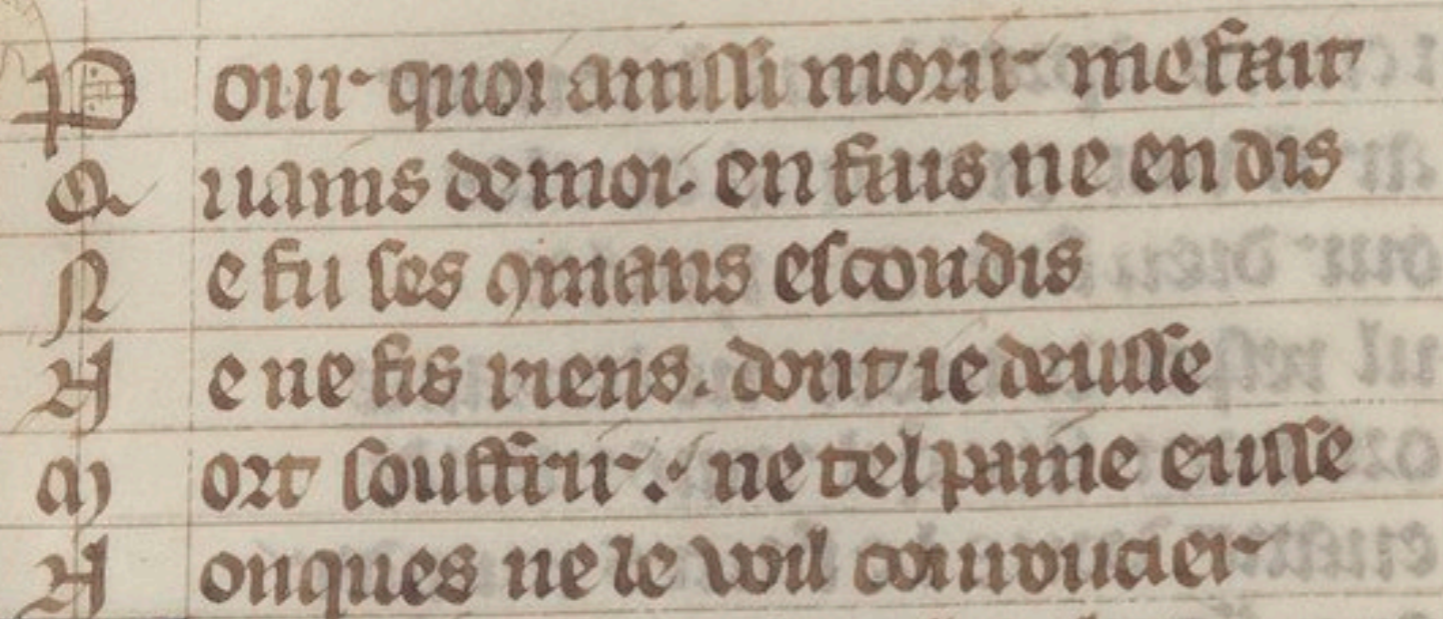 P our quoi ainssi morir me fait
Q uains de moi. en fais ne en dis
N e fu ses ꝯmans escondis
N e ne fis riens. dont ie deusse
M ort souffrir: ne tel paine eusse
N onques ne le voil couroucier